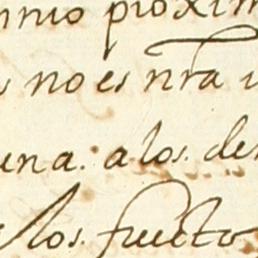 nnio proxim
s no es nra v
una. a los. de
los. fructo